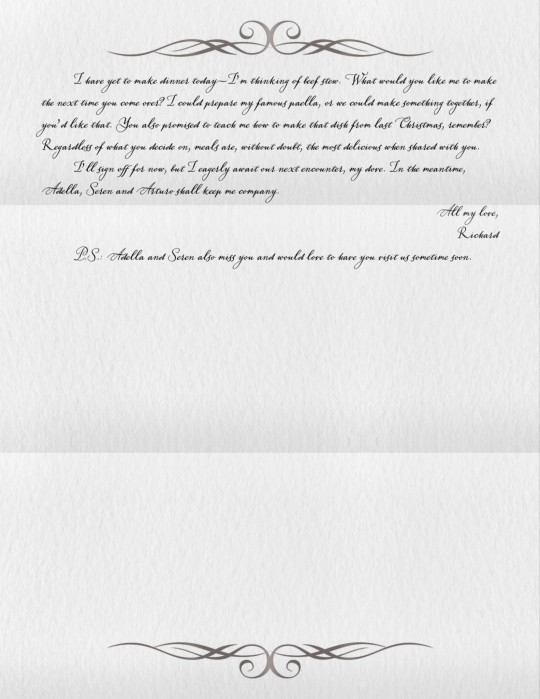 I have yet to make dinner today—I'm thinking of beef stew. What would you like me to make
the next time you come over? I could prepare my famous paella, or we could make something together, if
you'd like that. You also promised to teach me how to make that dish from last Christmas, remember?
Regardless of what you decide on, meals are, without doubt, the most delicious when shared with you.
I'll sign off for now, but I eagerly await our next encounter, my dove. In the meantime,
Adella, Seren and Arturo shall keep me company.
All my love,
Richard
P.S.: Adella and Seren also miss you and would love to have you visit us sometime soon.